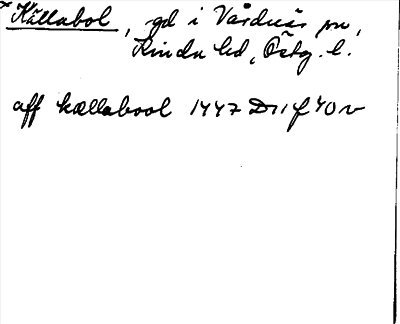 * Källabol, gd i Vårdnäs sn,
Kinda hd, Östg. l.
aff kællabool 1447 D 11 f 40 v